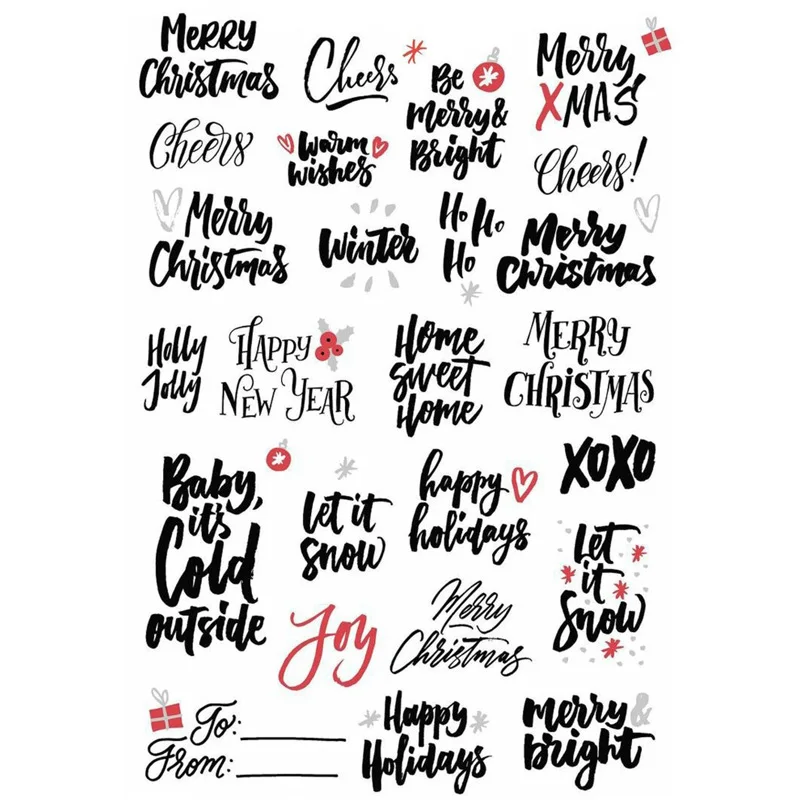 Merry
Christmas
Cheers
Be
merry&
Bright
Merry
XMAS
Cheers
Warm
wishes
Cheers!
Merry
Christmas
Winter
Ho Ho
Ho
Merry
Christmas
Holly
Jolly
HAPPY
NEW YEAR
Home
sweet
Home
MERRY
CHRISTMAS
XOXO
Baby,
it's
Cold
outside
let it
snow
happy
holidays
Let
it
Snow
Joy
Merry
Christmas
To:
From:
Happy
Holidays
merry &
bright